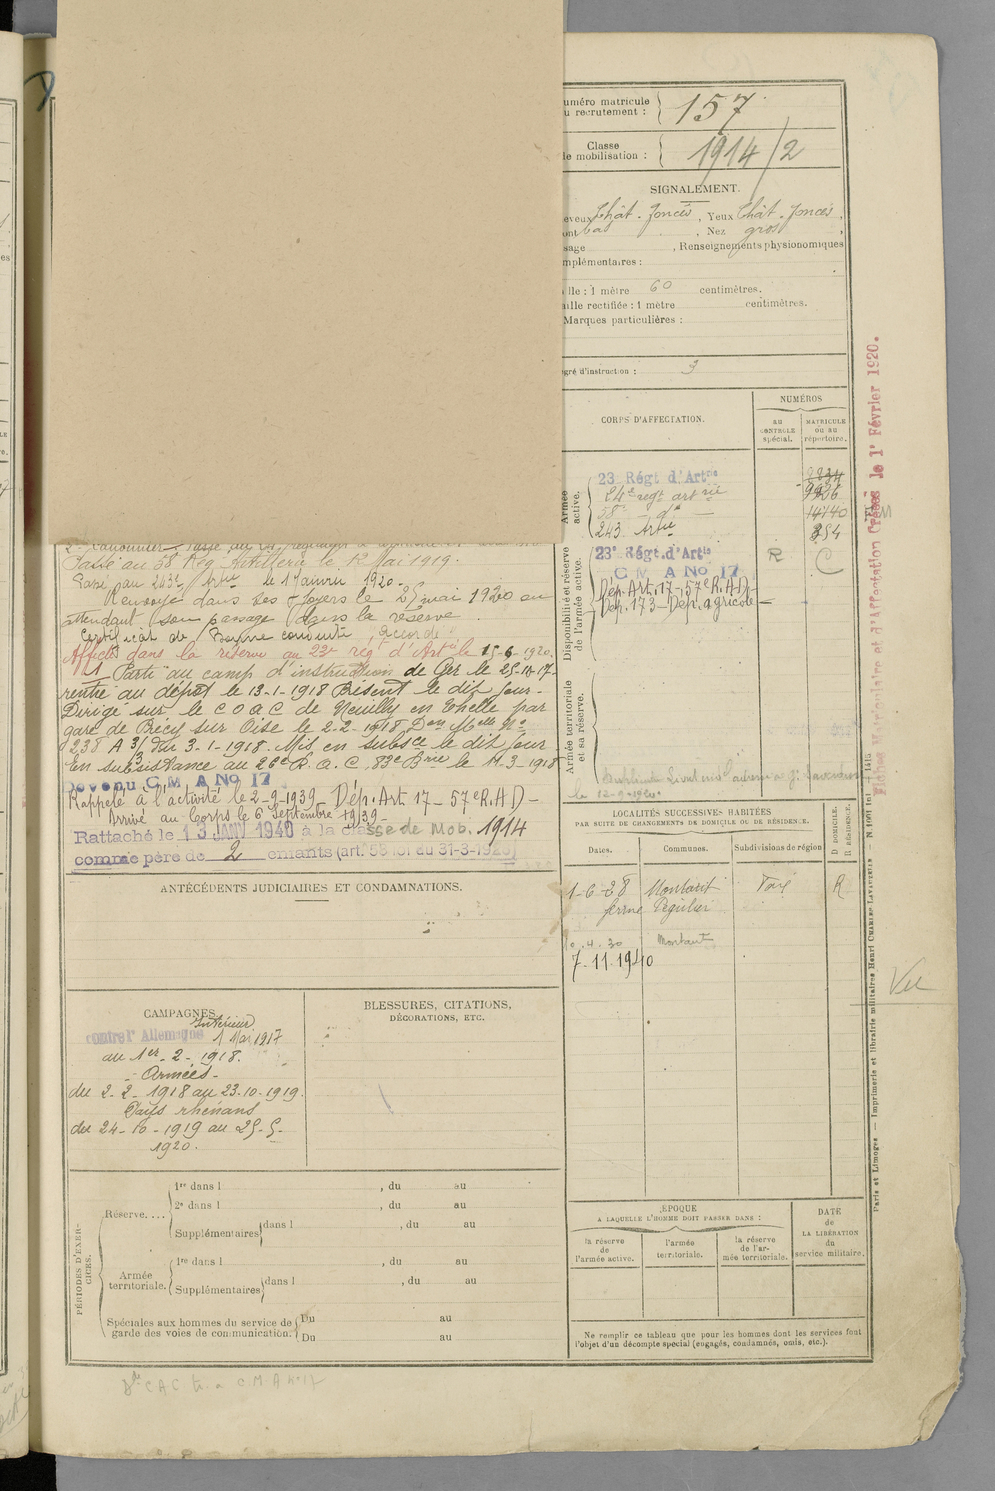 uméro matricule
u recrutement :
157
Classe
de mobilisation :
1914/2
SIGNALEMENT.
eveux Chât. foncés, Yeux Chât. foncés,
ont bas, Nez gros,
sage , Renseignements physionomiques
mplémentaires :
lle : 1 mètre 60 centimètres.
aille rectifiée : 1 mètre centimètres.
Marques particulières :
gré d'instruction : 3
CORPS D'AFFECTATION.
NUMÉROS
AU CONTROLE spécial.
MATRICULE ou au répertoire.
Armée active.
23 Régt d'Artrie
58e - d° -
14140
243 Artie
Disponibilité et réserve de l'armée active.
23e Régt. d'Artie R C
C M A No 17
Dép. Art. 17 - 57e R.A.D -
Dép. 173 - Dép. agricole -
Armée territoriale et sa réserve.
le 12-9-1920.
Passé au 58 Rég Artillerie le 1er Mai 1919.
Passé au 243e Artie le 1er Janvier 1920.
Renvoyé dans ses foyers le 25 mai 1920 en
attendant son passage dans la réserve.
Certificat de Bonne conduite, "Accordé"
Affecté dans la réserve au 23e rég d'Artie le 15-6-1920.
Parti au camp d'instruction de Ger le 25-10-17-
rentré au dépôt le 13-1-1918 Présent le dit jour-
Dirigé sur le C O A C de Neuilly en Thelle par
gare de Précy sur Oise le 2-2-1918 Don Mlle No
238 A 3/ du 3-1-1918. Mis en subsce le dit jour
En subsistance au 26e R. A. C, 83e Brie le 11-3-1918
Devenu C M A No 17
Rappelé à l'activité le 2-9-1939 - Dép. Art 17 - 57e R.A D -
Arrivé au Corps le 6 Septembre 1939 -
Rattaché le 13 JANV 1940 à la classe de Mob. 1914
comme père de 2 enfants (art. 58 loi du 31-3-1928)
ANTÉCÉDENTS JUDICIAIRES ET CONDAMNATIONS.
CAMPAGNES
contre l'Allemagne
Intérieur
1 Mai 1917
au 1er - 2 - 1918.
- Armées -
du 2-2-1918 au 23-10-1919.
Pays rhénans
du 24-10-1919 au 25-5-
1920.
BLESSURES, CITATIONS,
DÉCORATIONS, ETC.
LOCALITÉS SUCCESSIVES HABITÉES
PAR SUITE DE CHANGEMENTS DE DOMICILE OU DE RÉSIDENCE.
Dates. Communes. Subdivisions de région
D DOMICILE. R RÉSIDENCE.
1-6-28 R
ferme
Montaut
7-11-1940
Vu
PÉRIODES D'EXERCICES.
Réserve....
1re dans l , du au
2e dans l , du au
Supplémentaires dans l , du au
Armée territoriale.
1re dans l , du au
Supplémentaires dans l , du au
Spéciales aux hommes du service de
garde des voies de communication.
Du au
Du au
ÉPOQUE
A LAQUELLE L'HOMME DOIT PASSER DANS :
la réserve de l'armée active.
l'armée territoriale.
la réserve de l'armée territoriale.
DATE
de
LA LIBÉRATION
du
service militaire.
Ne remplir ce tableau que pour les hommes dont les services font
l'objet d'un décompte spécial (engagés, condamnés, omis, etc.).
Fiches Matriculaire et d'Affectation Créées le 1er Février 1920.
Paris et Limoges. — Imprimerie et librairie militaires Henri CHARLES-LAVAUZELLE
C M A No 17